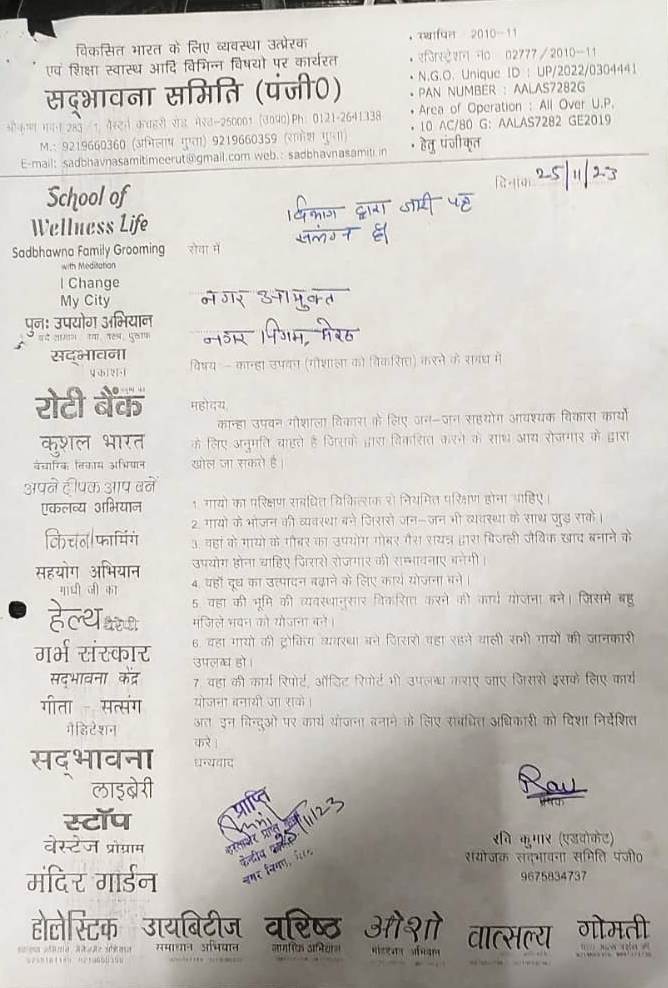 विकसित भारत के लिए व्यवस्था उत्प्रेरक
एवं शिक्षा स्वास्थ आदि विभिन्न विषयो पर कार्यरत
सद्भावना समिति (पंजी0)
श्रीकृष्ण भवन 283 /1, वैस्टर्न कचहरी रोड मेरठ-250001 (उ0प्र0) Ph: 0121-2641338
M.: 9219660360 (अभिलाष गुप्ता) 9219660359 (राकेश गुप्ता)
E-mail: sadbhavnasamitimeerut@gmail.com web.: sadbhavnasamiti.in
• स्थापित 2010-11
• रजिस्ट्रेशन no 02777 / 2010-11
• N.G.O. Unique ID : UP/2022/0304441
• PAN NUMBER : AALAS7282G
• Area of Operation : All Over U.P.
• 10 AC/80 G: AALAS7282 GE2019
• हेतु पंजीकृत
दिनांक 25/11/23
विभाग द्वारा जारी पत्र
संलग्न है
सेवा में
नगर आयुक्त
नगर निगम, मेरठ
विषय :- कान्हा उपवन (गौशाला को विकसित) करने के संबंध में
महोदय,
कान्हा उपवन गौशाला विकास के लिए जन-जन सहयोग आवश्यक विकास कार्यो
के लिए अनुमति चाहते है जिसके द्वारा विकसित करने के साथ आय रोजगार के द्वारा
खोल जा सकते है।
1. गायो का परिक्षण संबंधित चिकित्सक से नियमित परिक्षण होना चाहिए।
2. गायो के भोजन की व्यवस्था बने जिससे जन-जन भी व्यवस्था के साथ जुड़ सके।
3. वहां के गायो के गौबर का उपयोग गोबर गैस सयंत्र द्वारा बिजली जैविक खाद बनाने के
उपयोग होना चाहिए जिससे रोजगार की सम्भावनाए बनेगी।
4. वहाँ दूध का उत्पादन बढ़ाने के लिए कार्य योजना बने।
5. वहा की भूमि की व्यवस्थानुसार विकसित करने की कार्य योजना बने। जिसमे बहु
मंजिले भवन को योजना बने।
6. वहा गायो की ट्रोकिंग व्यवस्था बने जिससे वहा रहने वाली सभी गायों की जानकारी
उपलब्ध हो।
7. वहां की कार्य रिपोर्ट, ऑडिट रिपोर्ट भी उपलब्ध कराए जाए जिससे इसके लिए कार्य
योजना बनायी जा सके।
अतः इन बिन्दुओ पर कार्य योजना बनाने के लिए संबंधित अधिकारी को दिशा निर्देशित
करे।
धन्यवाद
प्राप्ति
25/11/23
हस्ताक्षर प्राप्त
केन्द्रीय
नगर निगम, मेरठ
Rau
प्रेषक
रवि कुमार (एडवोकेट)
संयोजक सद्भावना समिति पंजी0
9675834737
School of
Wellness Life
Sadbhawna Family Grooming
with Meditation
I Change
My City
पुनः उपयोग अभियान
सद्भावना
प्रकाशन
रोटी बैंक
कुशल भारत
वैचारिक विकास अभियान
अपने दीपक आप बनें
एकलव्य अभियान
किचन फार्मिंग
सहयोग अभियान
गांधी जी का
हेल्थ थैरेपी
गर्भ संस्कार
सद्भावना केंद्र
गीता सत्संग
मैडिटेशन
सद्भावना
लाइब्रेरी
स्टॉप
वेस्टेज प्रोग्राम
मंदिर गार्डन
होलेस्टिक डायबिटीज वरिष्ठ ओशो वात्सल्य गोमती
समाधान अभियान नागरिक अभियान